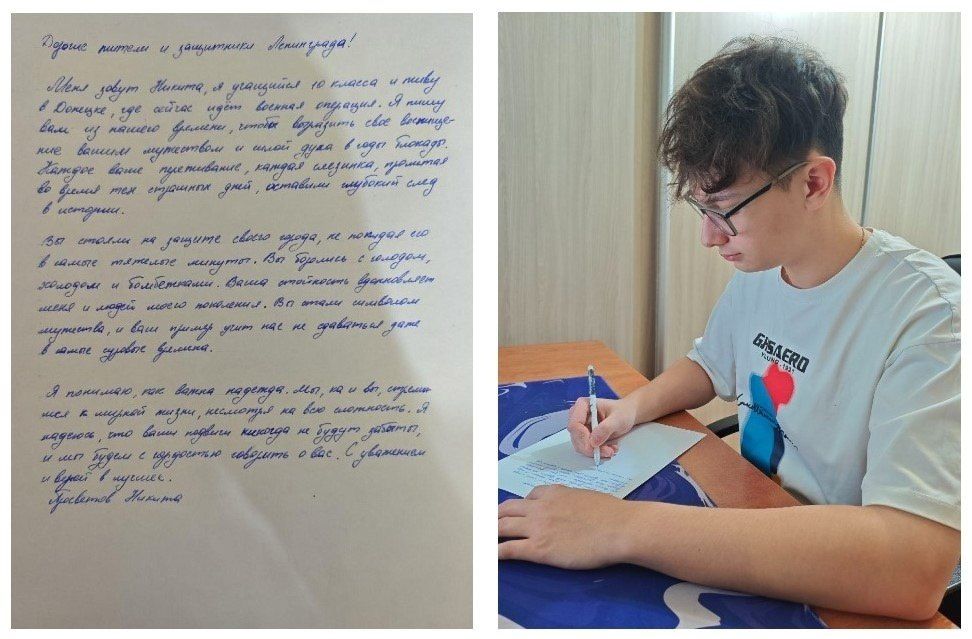 Дорогие жители и защитники Ленинграда!
Меня зовут Никита, я учащийся 10 класса и живу
в Донецке, где сейчас идёт военная операция. Я пишу
вам из нашего времени, чтобы выразить своё восхище-
ние вашим мужеством и силой духа в годы блокады.
Каждое ваше переживание, каждая слезинка, пролитая
во время тех страшных дней, оставили глубокий след
в истории.
Вы стояли на защите своего города, не покидая его
в самые тяжелые минуты. Вы боролись с голодом,
холодом и бомбежками. Ваша стойкость вдохновляет
меня и людей моего поколения. Вы стали символом
мужества, и ваш пример учит нас не сдаваться даже
в самые суровые времена.
Я понимаю, как важна надежда. Мы, ка и вы, стрем
мся к мирной жизни, несмотря на всю сложность. Я
надеюсь, что ваши подвиги никогда не будут забыты,
и мы будем с гордостью говорить о вас. С уважением
и верой в лучшее.
Никита
YOUNG